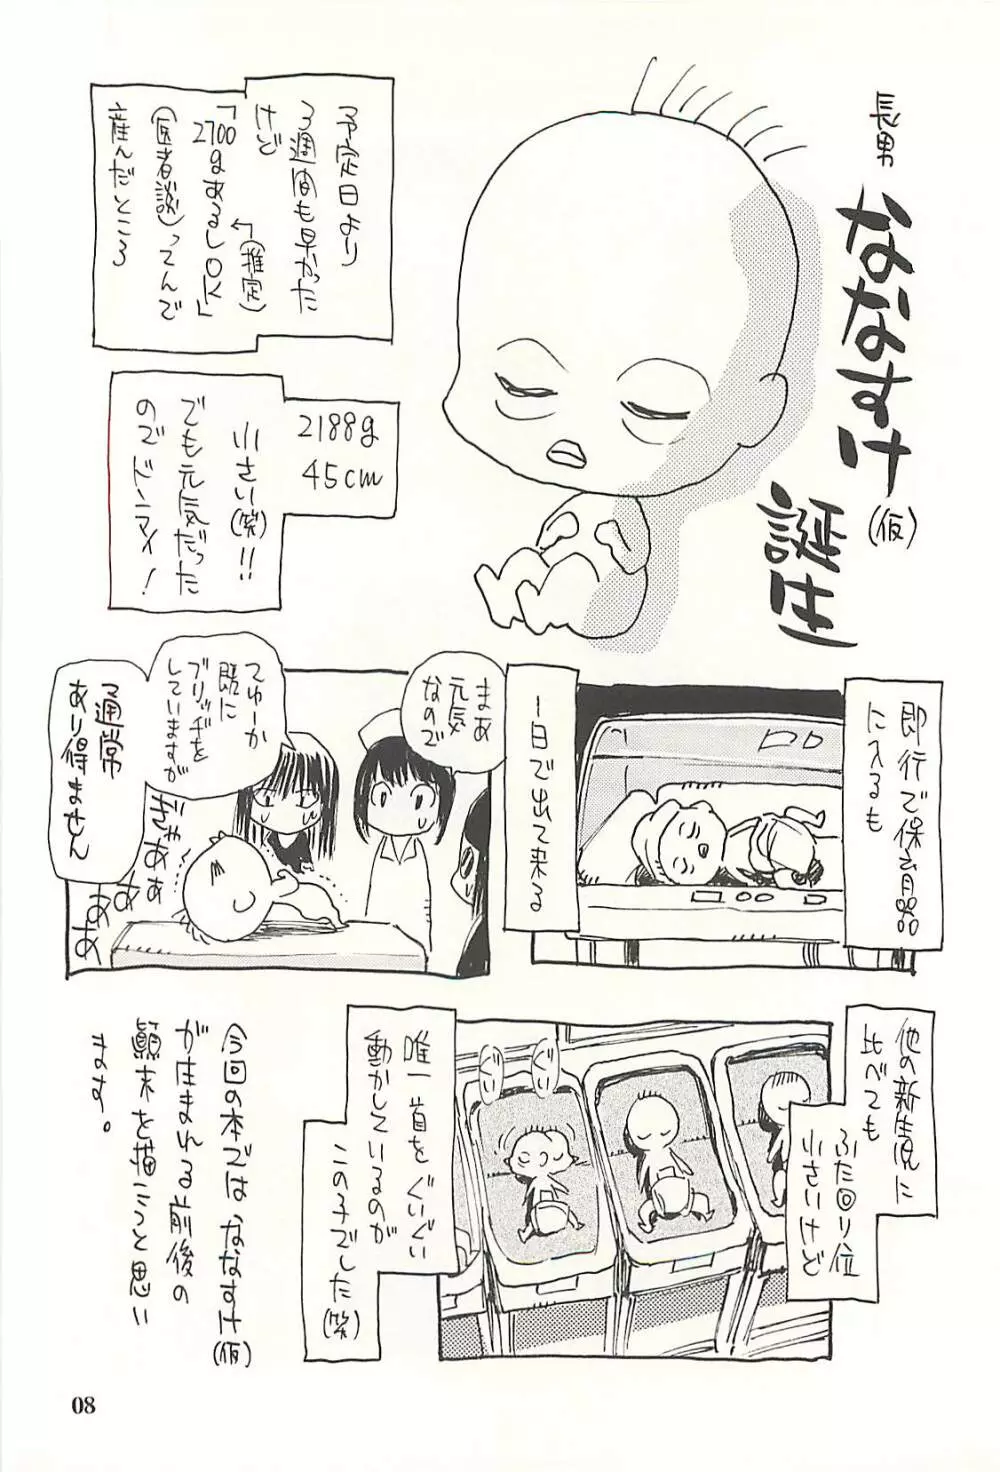 長男
ななすけ
(仮)
誕生
予定日より
3週間も早かった
けど
「2700gあるしOK」
↰(推定)
(医者談)ってんで
産んだところ
2188g
45cm
小さい(笑)!!
でも元気だった
のでドンマイ!
即行で保育器
に入るも
一日で出て来る
まあ
元気
なので
てゆーか
既に
ブリッヂを
していますが
通常
あり得ません
ぎゃああ
ああ
ああ
他の新生児に
比べても
ふた回り位
小さいけど
ぐい
ぐい
唯一首をぐいぐい
動かしているのが
この子でした(笑)
今回の本では、ななすけ(仮)
が生まれる前後の
顛末を描こうと思い
ます。
08